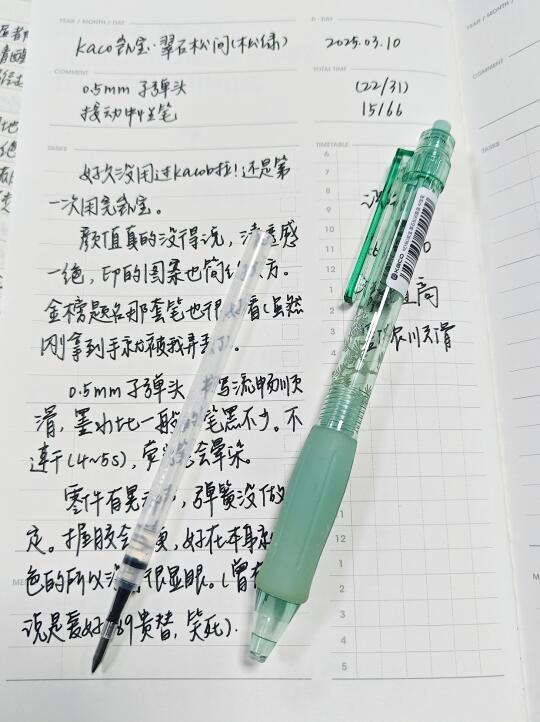 YEAR / MONTH / DAY
D-DAY
kaco 翠石松间(松绿)
2025.03.10
COMMENT
TOTAL TIME
0.5mm 子弹头
(22/31)
按动中性笔
15166
TASKS
TIMETABLE
好久没用过kaco啦!还是第
一次用完
颜值真的没得说,感
一绝,印的图案也简方。
金榜题名那套笔也很好看(虽然
刚拿到手就被我弄丢了)。
0.5mm 子弹头 书写流畅顺
滑,墨水比一般的笔黑不少。不
速干(4~5s),会晕染。
零件有晃,弹簧没做
定。握胶会,好在本身
色的所以很显眼。(曾有
说是爱好贵替,笑死)。
高
顺滑
KACO
6
7
8
9
10
11
12
1
2
3
4
5